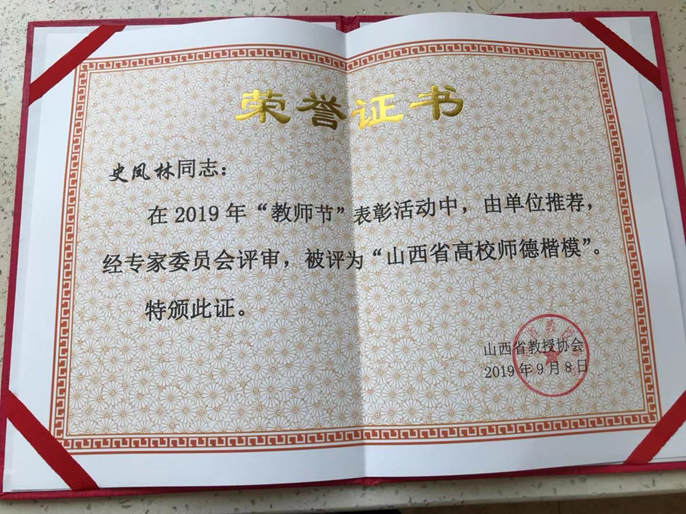 荣誉证书
史凤林同志：
在2019年“教师节”表彰活动中，由单位推荐，
经专家委员会评审，被评为“山西省高校师德楷模”。
特颁此证。
山西省教授协会
2019年9月8日